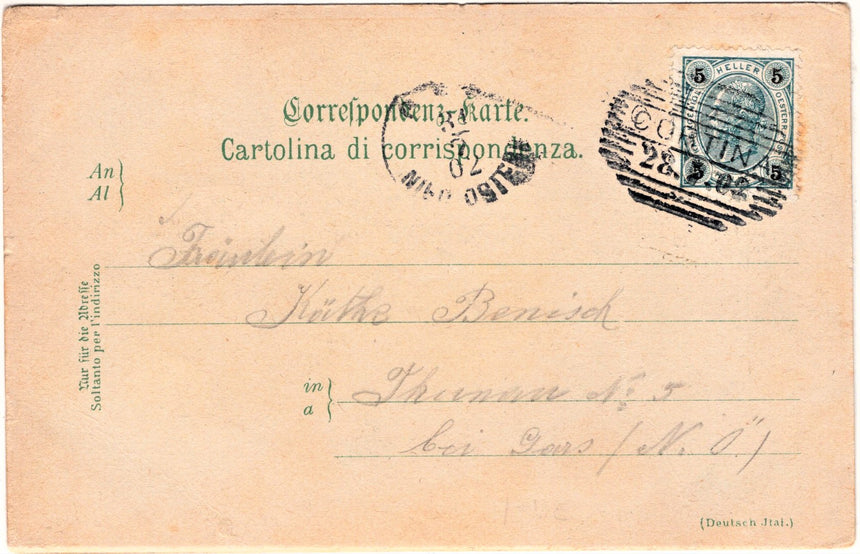 Correspondenz-Karte.
Cartolina di corrispondenza.
An
Al
Nur für die Adresse
Soltanto per l'indirizzo
5 HELLER 5
5 5
CORTINA
28. 02
02
Fräulein
Käthe Benisch
in
a
Thunau No 5
bei Gars (N. Ö.)
(Deutsch Jtal.)